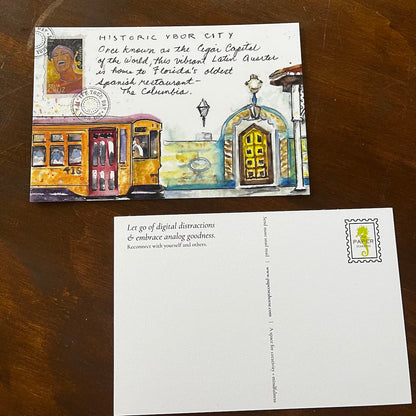 HISTORIC YBOR CITY
Once known as the Cigar Capital
of the world, this vibrant Latin Quarter
is home to Florida's oldest
Spanish restaurant—
The Columbia.
415
Let go of digital distractions
& embrace analog goodness.
Reconnect with yourself and others.
Send more snail mail | www.paperseahorse.com | A space for creativity + mindfulness
PAPER
SEAHORSE